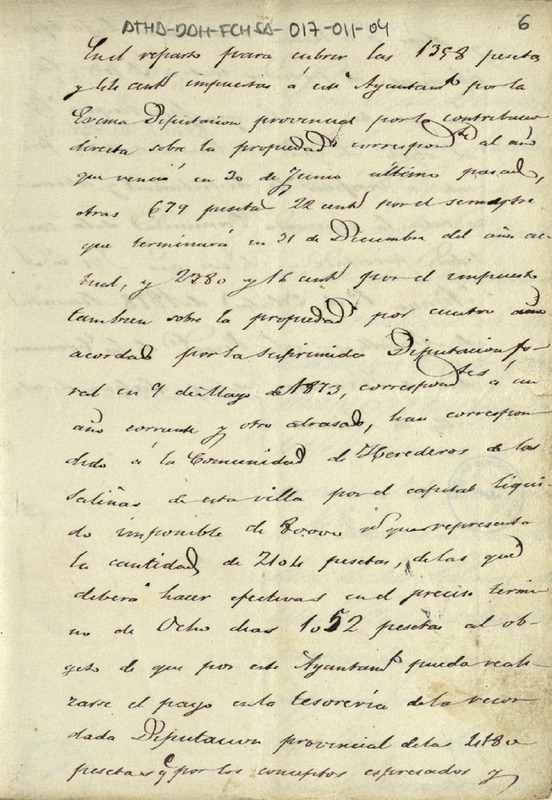 ATHA-DAH-FCHSA-017-011-04
6
En el reparto para cubrir las 1358 pesetas
y cent.s impuestas á este Ayuntam.to por la
Excma Diputacion provincial por la contribucion
directa sobre la propiedad correspond.te al año
que venció en 30 de Junio último pasado,
otras 679 pesetas 22 cent.s por el semestre
que terminará en 31 de Diciembre del año ac
tual, y 2780 y 16 cent.s por el impuesto
tambien sobre la propiedad por cuatro años
acordado por la suprimida Diputacion fo
ral en 9 de Mayo de 1873, correspond.tes á un
año corriente y otro atrasado, han correspon
dido á la Comunidad de Herederos de las
Salinas de esta villa por el capital liqui
do imponible de r.s que representa
la cantidad de 2104 pesetas, de las que
deberá hacer efectivas en el preciso termi
no de Ocho dias 1052 pesetas al ob
geto de que por este Ayuntam.to pueda reali
zarse el pago en la tesorería de la recor
dada Diputacion provincial de las
pesetas q.e por los conceptos espresados y